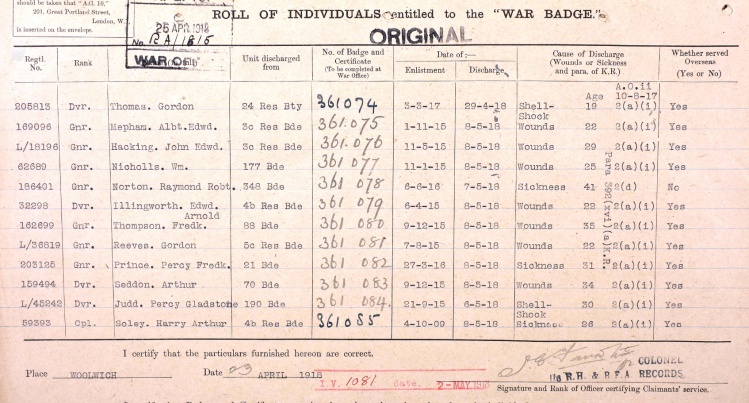 should be taken that "A.G. 10."
201, Great Portland Street,
London, W.
is inserted on the envelope.
25 APR 1918
No. RA/1815
WAR OFF
ROLL OF INDIVIDUALS entitled to the "WAR BADGE."
ORIGINAL
Regtl. No. Rank Name Unit discharged from No. of Badge and Certificate (To be completed at War Office) Date of:— Enlistment Discharge Cause of Discharge (Wounds or Sickness and para. of K.R.) Whether served Overseas (Yes or No)
A.O.ii
Age 10-8-17
205813 Dvr. Thomas. Gordon 24 Res Bty 361074 3-3-17 29-4-18 Shell-Shock 19 2(a)(i) Yes
169096 Gnr. Mepham. Albt.Edwd. 3c Res Bde 361.075 1-11-15 8-5-18 Wounds 22 2(a)(i) Yes
L/18196 Gnr. Hacking. John Edwd. 3c Res Bde 361.076 11-5-15 8-5-18 Wounds 29 2(a)(i) Yes
62689 Gnr. Nicholls. Wm. 177 Bde 361 077 11-1-15 8-5-18 Wounds 25 2(a)(i) Yes
186401 Gnr. Norton. Raymond Robt. 348 Bde 361 078 6-6-16 7-5-18 Sickness 41 2(d) No
32298 Dvr. Illingworth. Edwd. Arnold 4b Res Bde 361 079 6-4-15 8-5-18 Wounds 22 2(a)(i) Yes
162699 Gnr. Thompson. Fredk. 88 Bde 361 080 9-12-15 8-5-18 Wounds 35 2(a)(i) Yes
L/36819 Gnr. Reeves. Gordon 5c Res Bde 361 081 7-8-15 8-5-18 Wounds 22 2(a)(i) Yes
203125 Gnr. Prince. Percy Fredk. 21 Bde 361 082 27-3-16 8-5-18 Sickness 31 2(a)(i) Yes
159494 Dvr. Seddon. Arthur 70 Bde 361 083 9-12-15 8-5-18 Wounds 34 2(a)(i) Yes
L/45242 Dvr. Judd. Percy Gladstone 190 Bde 361 084. 21-9-15 6-5-18 Shell-Shock 30 2(a)(i) Yes
59393 Cpl. Soley. Harry Arthur 4b Res Bde 361085 4-10-09 8-5-18 Sickness 26 2(a)(i) Yes
Para 392(xvi)(a)K.R.
I certify that the particulars furnished hereon are correct.
Place WOOLWICH Date 23 APRIL 1918
I.V. 1081 date. 2-MAY 1918
COLONEL
R.H & R F A RECORDS
Signature and Rank of Officer certifying Claimants' service.